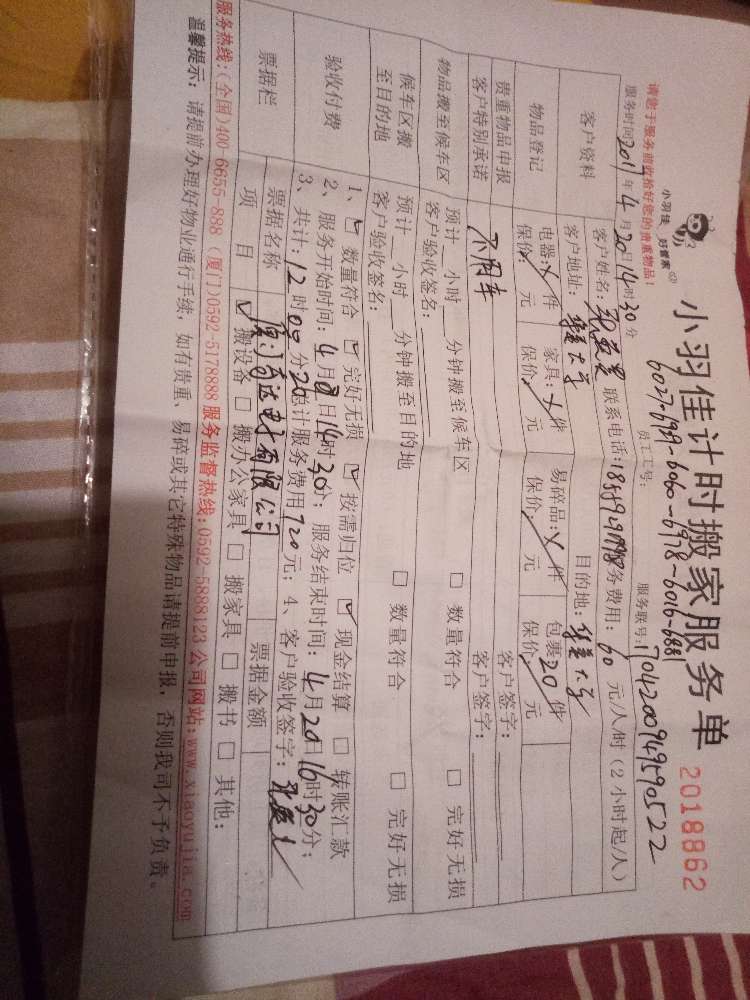 请您于服务前收拾好您的贵重物品!
小羽佳
好管家
小羽佳计时搬家服务单
2018862
6027-6929-6060-6978-6016-6881
员工工号:
服务联号:1704200949590522
服务时间2017年4月20日14时30分
客户资料
客户姓名:
联系电话:
服务费用:60元/人/时(2小时起/人)
客户地址:华美大字
目的地:华美大字
物品登记
电器:/件 家具:/件 易碎品:/件 包裹20件
保价:/元 保价:/元 保价:/元 保价:/元
贵重物品申报
客户特别承诺
不用车
客户签字:
物品搬至候车区
预计 小时 分钟搬至候车区 □ 数量符合 □ 完好无损
客户验收签名:
客户签字:
候车区搬
至目的地
预计 小时 分钟搬至目的地 □ 数量符合 □ 完好无损
客户验收签名:
验收付费
1、☑ 数量符合 ☑ 完好无损 ☑ 按需归位 ☑ 现金结算 □ 转账汇款
2、服务开始时间:4月20日14时30分;服务结束时间:4月20日16时30分;
3、共计:12时00分 总计服务费用720元;4、客户验收签字:
票据栏
票据名称
票据金额
项目
☑ 搬设备 □ 搬办公家具 □ 搬家具 □ 搬书 □ 其他:
服务热线:(全国)400-6655-888 (厦门)0592-5178888 服务监督热线:0592-5888123 公司网站:www.xiaoyujia.com
温馨提示:请提前办理好物业通行手续;如有贵重、易碎或其它特殊物品请提前申报,否则我司不予负责。